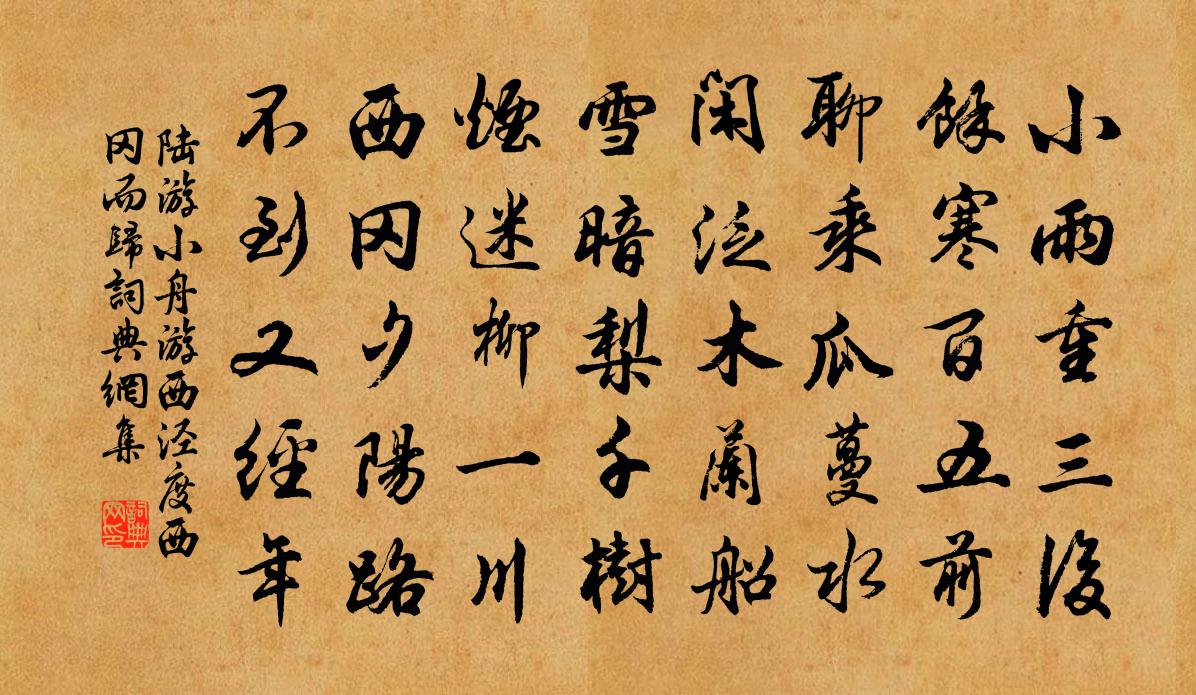 小雨重三後
餘寒百五前
聊乘瓜蔓水
閑泛木蘭船
雪暗梨千樹
煙迷柳一川
西岡夕陽路
不到又經年
陸游小舟游西涇度西
岡而歸詞典網集
詞典網印